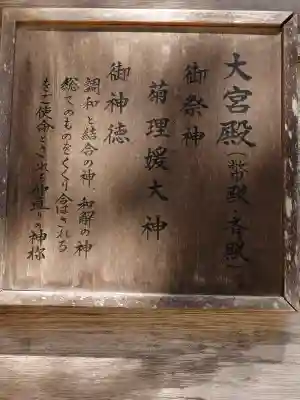 大宮殿(幣殿・吞殿)
御祭神
菊理媛大神
御神徳
調和と結合の神 和解の神
総てのものをくくり合はされる
をご使命とされる修理りの神様